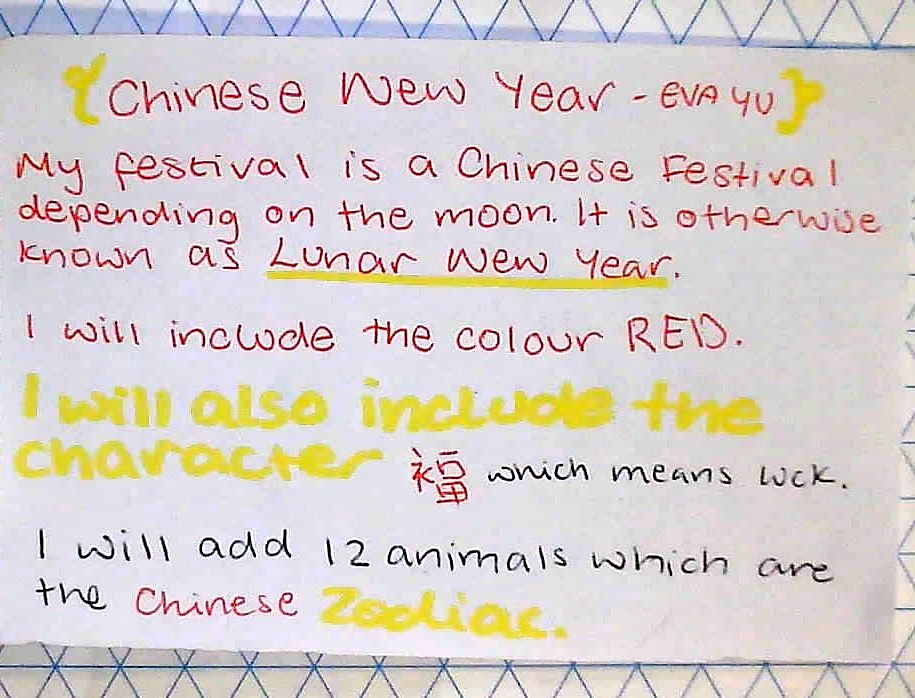 {Chinese New Year - EVA YU}
My festival is a Chinese Festival
depending on the moon. It is otherwise
known as Lunar New Year.
I will include the colour RED.
I will also include the
character 福 which means luck.
I will add 12 animals which are
the Chinese Zodiac.